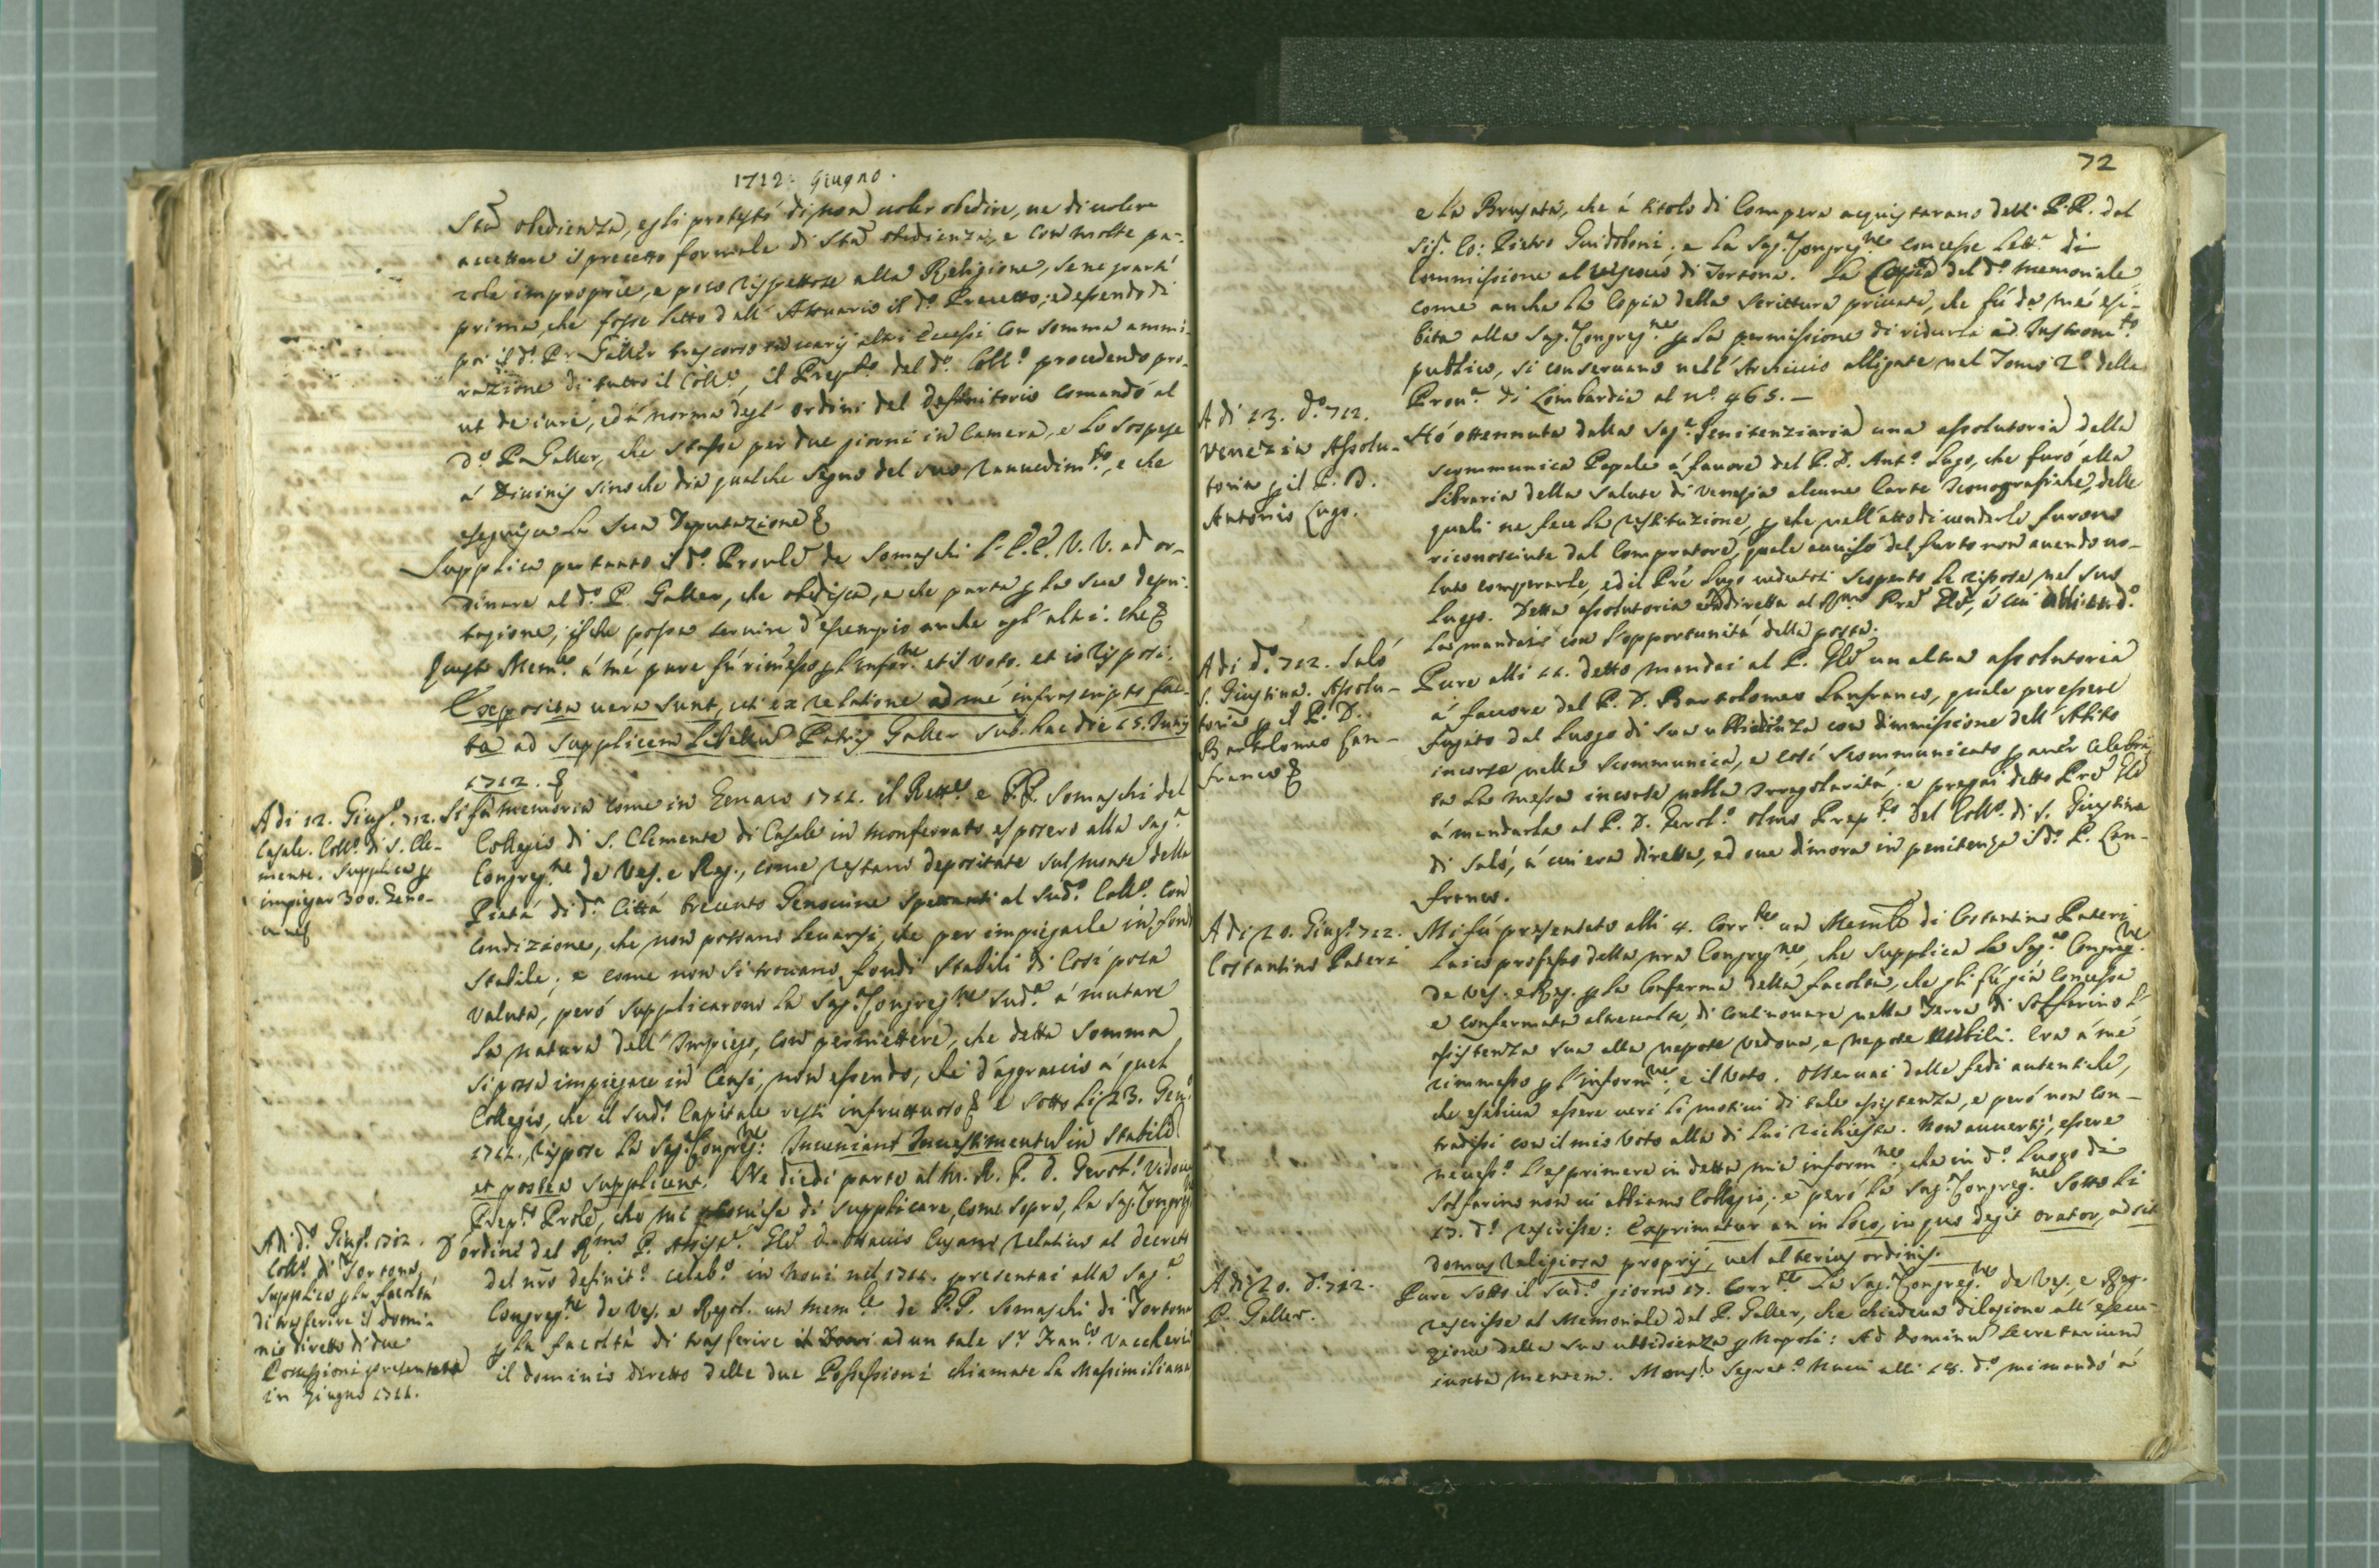 1712. Giugno.
Sta obedienza, egli protestò di non voler obedire, ne di volere
accettare il precetto formale di Sta obedienza, e con molte pa-
role improprie, e poco rispettose alla Religione, se ne partì
prima, che fosse letto dall' Attuario il do. Precetto; ed essendo di
poi il do. Pr. Galler trascorso in varij altri eccessi con somma ammi-
razione di tutto il Collo, il Prepto. del do. Collo. procedendo pro-
ut de iure, ed à norma degl' ordini del Definitorio comandò al
do. P. Galler, che stasse per due giorni in Camera, e lo sospese
à Divinis sino che dia qualche segno del suo ravvedimto., e che
eseguisca la sua Deputazione &
Supplica pertanto il do. Provle de Somaschi l'E.E. V.V. ad or-
dinare al do. P. Galler, che obedisca, e che parta p la sua depu-
tazione, il che possa servire d'esempio anche agl' altri. Che &
Questo Memle à mé pure fù rimesso p l'Inforne. et il voto. et io risposi.
Exposita vera sunt, uti ex relatione ad me infrascripto fac-
ta ad supplicem libellum Patris Galler sub hac die 15. Junij
1712. &
Adi 12. Giugo. 712.
Casale. Collo. di S. Cle-
mente. Supplica p
impiegar 300. Geno-
vine
Si fà memoria come in Genaro 1711. il Rettre e PP. Somaschi del
Collegio di S. Clemente di Casale in Monferrato esposero alla Saga.
Congregne. de Ves. e Reg., come restano depositate sul monte della
Pietà di da. Città trecento Genovine spettanti al sudo. Collo. con
condizione, che non possano levarsi, che per impiegarle in fondo
stabile; e come non si trovano fondi stabili di così poca
valuta, però supplicarono la Sag. Congregne suda. à mutare
la natura dell' Impiego, con permettere, che detta somma
si possa impiegare in Censi, non essendo, che d'aggravio à quel
Collegio, che il sudo. Capitale resti infruttuoso & e sotto li 23. Geno.
1711. rispose la Sag. Congregne: Inveniant Investimentum in stabili
et postea supplicent. Ne diedi parte al M. R. P. D. Gerolo. Vidoue
Prepto. Prole, che mi promise di supplicare, come sopra, la Sag. Congregne
Adi do. Giugo. 1712.
Collo. di Tortona.
Supplica p la facoltà
di trasferire il domi-
nio diretto di due
Possessioni presentata
in Giugno 1711.
D'ordine del Rmo P. Assiste. Gle D. Ottavio Cusani relativo al decreto
del nro definito. celebo. in Novi nel 1711. presentai alla Saga.
Congregne de Ves. e Regol. un memle de P.P. Somaschi di Tortona
p la facoltà di trasferire ad un tale Sr Franco Vaccheri
il dominio diretto delle due Possessioni chiamate la Massimiliana
72
e la Brusata, che à titolo di Compera acquistarano detti P.P. dal
Sig. Co: Pietro Guidoboni; e la Sag. Congregne concesse letta. di
Commissione al Vescovo di Tortona. La Copia del do. Memoriale
come anche la Copia della Scrittura privata, che fù da mé esi-
bita alla Sag. Congregne p la permissione di ridurla ad Instromto
publico, si conservano nell' Archivio alligate nel Tomo 2o. della
Prova. di Lombardia al no. 465. —
Adi 13. do. 712.
Venezia Assolu-
toria p il P. D.
Antonio Lugo.
Hò ottennuta dalla Saga. Penitenziaria una assolutoria della
scommunica Papale à favore del P. D. Anto. Lugo, che furò alla
Libraria della Salute di Venezia alcune Carte Iconografiche, delle
quali ne fece la restituzione, p che nell' atto di venderle furono
riconosciute dal Compratore, quale avvisò del furto non avendo vo-
luto comperarle, ed il Pre Lugo vedutosi scoperto le ripose nel suo
luogo. Detta assolutoria è diretta al Rmo Pre Gle, à cui
la mandai con l'opportunità della posta.
Adi do. 712. Salò
S. Giustina. Assolu-
toria p il P. D.
Bartolomeo Lan-
franco &
Pure alli 11. detto mandai al P. Gle un altra assolutoria
à favore del P. D. Bartolomeo Lanfranco, quale per essere
fugito dal luogo di sua ubbidienza con dimmissione dell' Abito
incorse nella scommunica, e così scommunicato p aver celebra-
ta la messa incorse nella irregolarità; e pregai detto Pre Gle
à mandarla al P. D. Gerolo. Olmo Prepto. del Collo. di S. Giustina
di Salò, à cui era diretta, ed ove dimora in penitenza il do. P. Lan-
franco.
Adi 20. Giugo. 712.
Costantino Pateri
Mi fù presentato alli 4. Corrte un Memle di Costantino Pateri
laico professo della nra Congregne, che supplica la Saga. Congregne.
de Ves. e Reg. p la conferma della facoltà, che gli fù già concessa
e confermata altrevolte, di continovare nella Terra di Solfarino l'
assistenza sua alla nepote vedova, e nepote nubili. Era à mé
rimmesso p l'informne. e il Voto. Osservai dalle fedi autentiche,
che esibiva essere veri li motivi di tale assistenza, e però non con-
tradissi con il mio Voto alla di lui richiesta. Non avvertij, essere
necesso. l'esprimere in detta mia informne. che in do. luogo di
Solfarino non vi abbiamo Collegio; e però la Sag. Congregne sotto li
17. do. rescrisse: Exprimatur an in loco, in quo degit orator, adsit
domus Religiosa proprij, vel alterius ordinis.
Adi 20. do. 712.
P. Galler.
Pure sotto il sudo. giorno 17. Corrte la Sag. Congregne de Ves. e Reg.
rescrisse al Memoriale del P. Galler, che chiedeva dilazione all' esecu-
zione della sua ubbidienza p Napoli: Ad Dominum Secretarium
iuxta mentem. Monsr Segreto. Nucci alli 18. do. mi mandò à